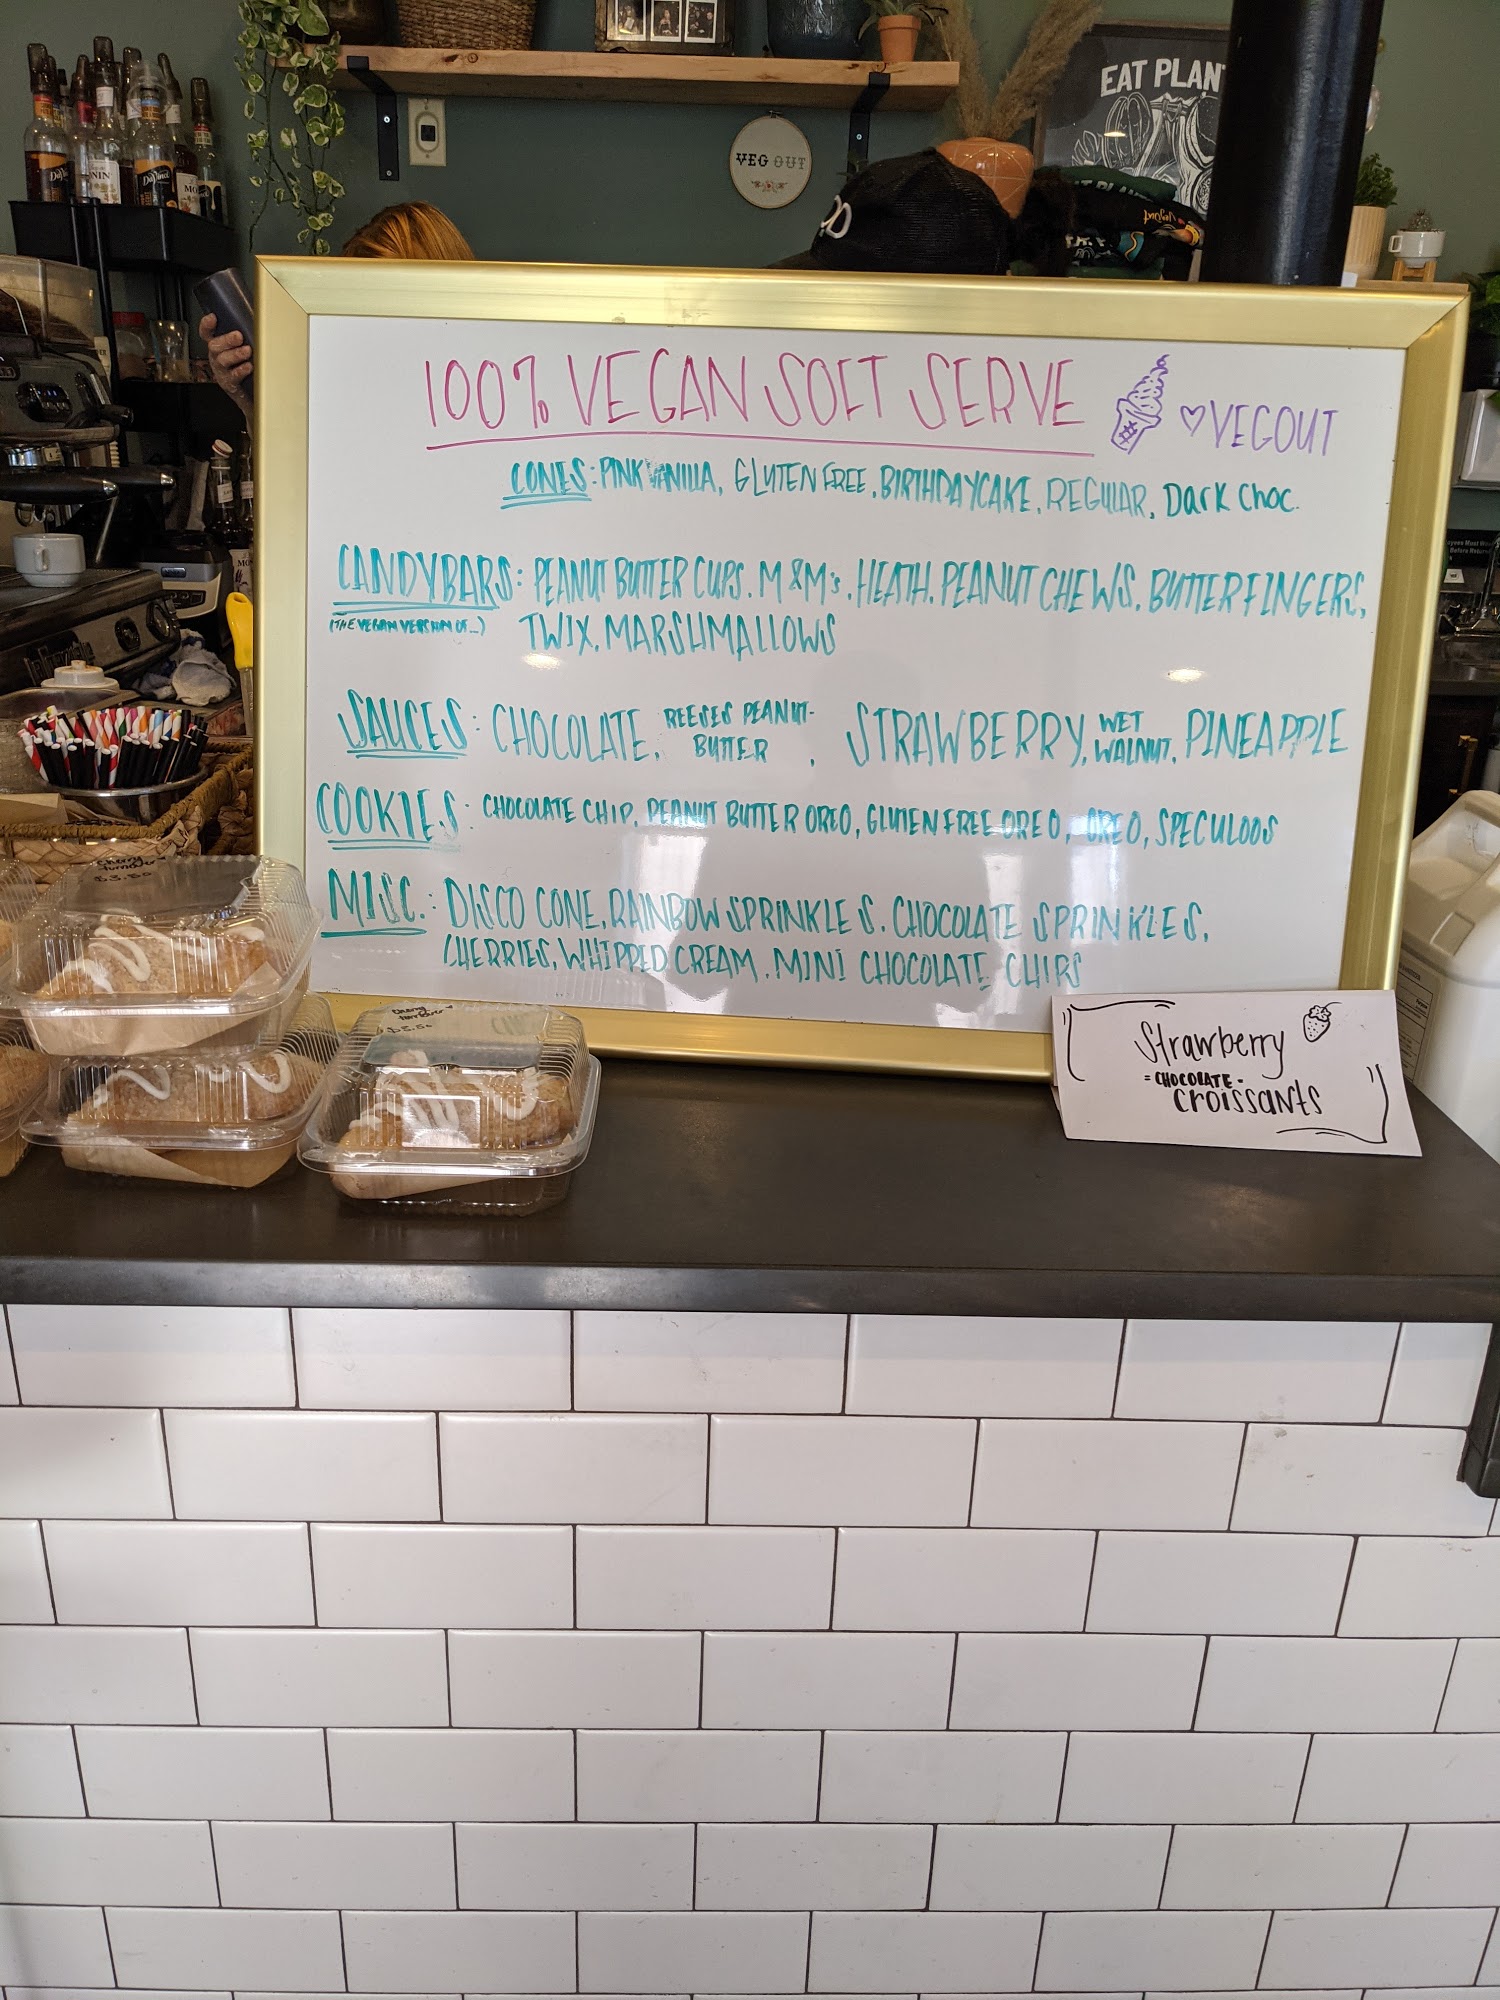 EAT PLAN
VEG OUT
DaVinci
NIN
DaVinci
MO
100% VEGAN SOFT SERVE
♡VEGOUT
CONES: PINK VANILLA, GLUTEN FREE, BIRTHDAYCAKE, REGULAR, Dark Choc.
CANDYBARS: PEANUT BUTTER CUPS, M&M's, HEATH, PEANUT CHEWS, BUTTERFINGERS,
(THE VEGAN VERSION OF...) TWIX, MARSHMALLOWS
SAUCES: CHOCOLATE, REESES PEANUT-
BUTTER, STRAWBERRY, WET
WALNUT, PINEAPPLE
COOKIES: CHOCOLATE CHIP, PEANUT BUTTER OREO, GLUTEN FREE OREO, OREO, SPECULOOS
MISC.: DISCO CONE, RAINBOW SPRINKLES, CHOCOLATE SPRINKLES,
CHERRIES, WHIPPED CREAM, MINI CHOCOLATE CHIPS
Cherry
turnover
$3.50
Cherry
turnover
$3.50
Strawberry
= CHOCOLATE -
croissants